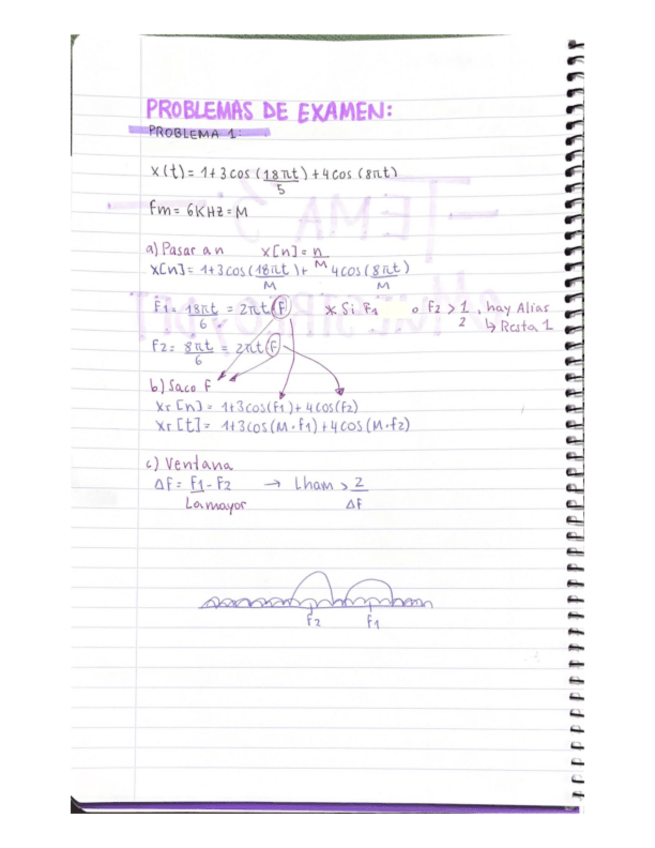 PROBLEMAS DE EXAMEN:
PROBLEMA 1:
x(t) = 1+3cos(18πt/5)+4cos(8πt)
fm= 6KHz = M
a) Pasar a n x[n] = n/M
x[n] = 1+3cos(18πt/M)+4cos(8πt/M)
F1= 18πt/6 = 2πt(F) * Si F1 o F2 > 1/2, hay Alias
↳ Resta 1
F2= 8πt/6 = 2πt(F)
b) Saco F
Xr[n] = 1+3cos(f1)+4cos(f2)
Xr[t] = 1+3cos(M·f1)+4cos(M·f2)
c) Ventana
ΔF= F1-F2 → Lham > 2/ΔF
La mayor
F2 F1